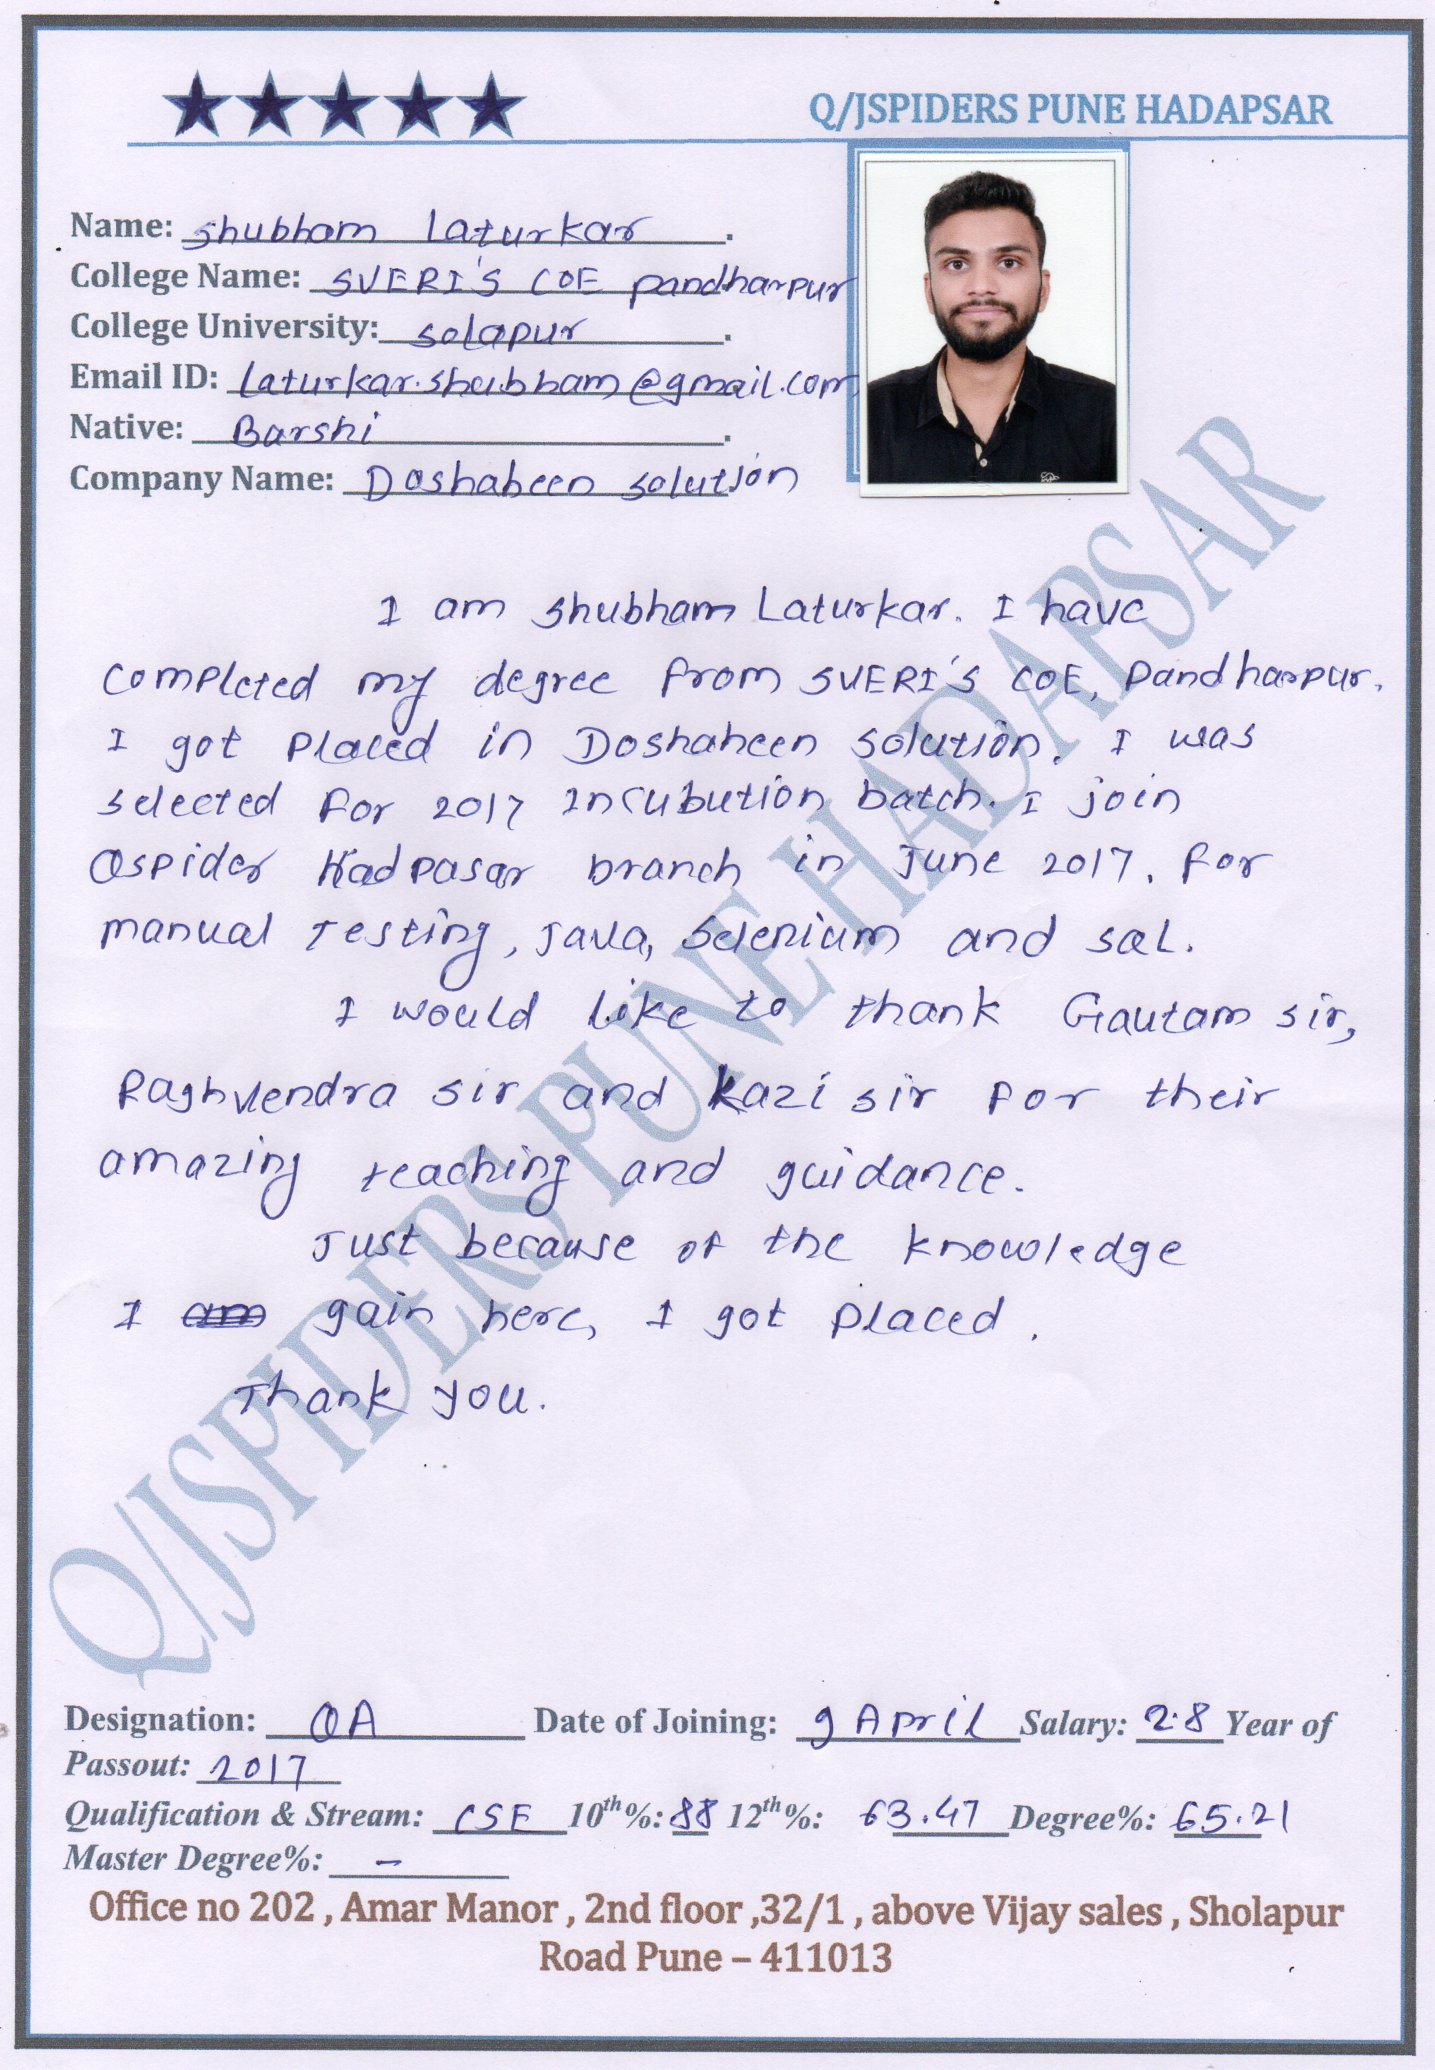 Q/JSPIDERS PUNE HADAPSAR
Name: Shubham Laturkar.
College Name: SVERI'S COE Pandharpur
College University: Solapur.
Email ID: Laturkar.shubham@gmail.com
Native: Barshi.
Company Name: Doshaheen Solution
I am Shubham Laturkar. I have
completed my degree from SVERI'S COE, Pandharpur.
I got placed in Doshaheen Solution. I was
selected for 2017 Incubution batch. I join
Qspider Hadpasar branch in June 2017. for
manual Testing, Java, Selenium and SQL.
I would like to thank Gautam sir,
Raghvendra sir and Kazi sir for their
amazing teaching and guidance.
Just because of the knowledge
I am gain here, I got placed.
Thank you.
Q/JSPIDERS PUNE HADAPSAR
Designation: QA Date of Joining: 9 April Salary: 2.8 Year of
Passout: 2017
Qualification & Stream: CSE 10th%: 88 12th%: 63.47 Degree%: 65.21
Master Degree%: -
Office no 202 , Amar Manor , 2nd floor ,32/1 , above Vijay sales , Sholapur
Road Pune – 411013